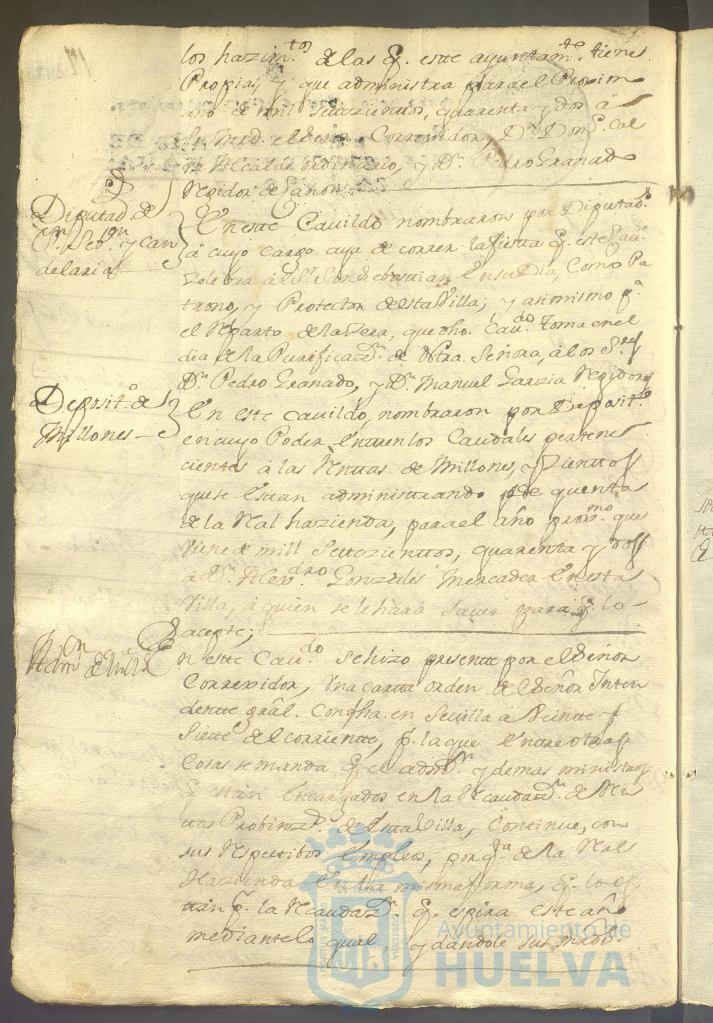 los hazim.tos de las q. este ayuntam.to tiene
Propias, y que administra para el Proximo
año de mil setezientos, quarenta y dos á
su Mrd. el Señor Corregidor, Dn. Dom.o Cal
Alcalde ordinario, y Dn. Pedro Granado
Regidor de Cañon
Diputad.s de
Sn. Seb.n y Can
delaria
En este Cavildo nombraron por Diputad.s
á cuyo cargo aya de correr la fiesta q. este Cau.do
Zelebra á el Sr. San Sebastian En su Dia, Como Pa
trono, y Protector de esta Villa; y asimismo p.a
el Reparto de la Zera, que dho. Cau.do toma en el
dia de la Purificaz.n de Ntra. Señora, á los S.res
Dn. Pedro Granado, y Dn. Manuel Garzia Regidores
Deposit.o de
Millones
En este cavildo, nombraron por Deposit.o
en cuyo Poder Entren los Caudales pertene
cientes á las Rentas de Millones, y Zientos
que se Estan administrando de quenta
de la Ral hazienda, para el año prox.mo que
viene de mill Setezientos, quarenta y dos
á Dn. Alex.dro Gonzales Mercader En esta
Villa, á quien se le hará saver para q. lo
acepte;
En este Cau.do se hizo presente por el Señor
Corregidor, Una carta orden de el Señor Inten
dente gral. Con fha. en Sevilla á Veinte y
Siete de el corriente, p. la que Entre otras
Cosas se manda q. el adm.or y demas ministros
q. estan Encargados en la Recaudaz.n de Ren
tas Probinz.s de Esta Villa, Continue, con
sus Respectibos Empleos, por q.ta de la Ral
Hazienda En la misma forma, q. lo es
tan p. la Recaudaz.n q. espira este año
mediante lo qual, y dandole sus mrds.
Ayuntamiento de
HUELVA